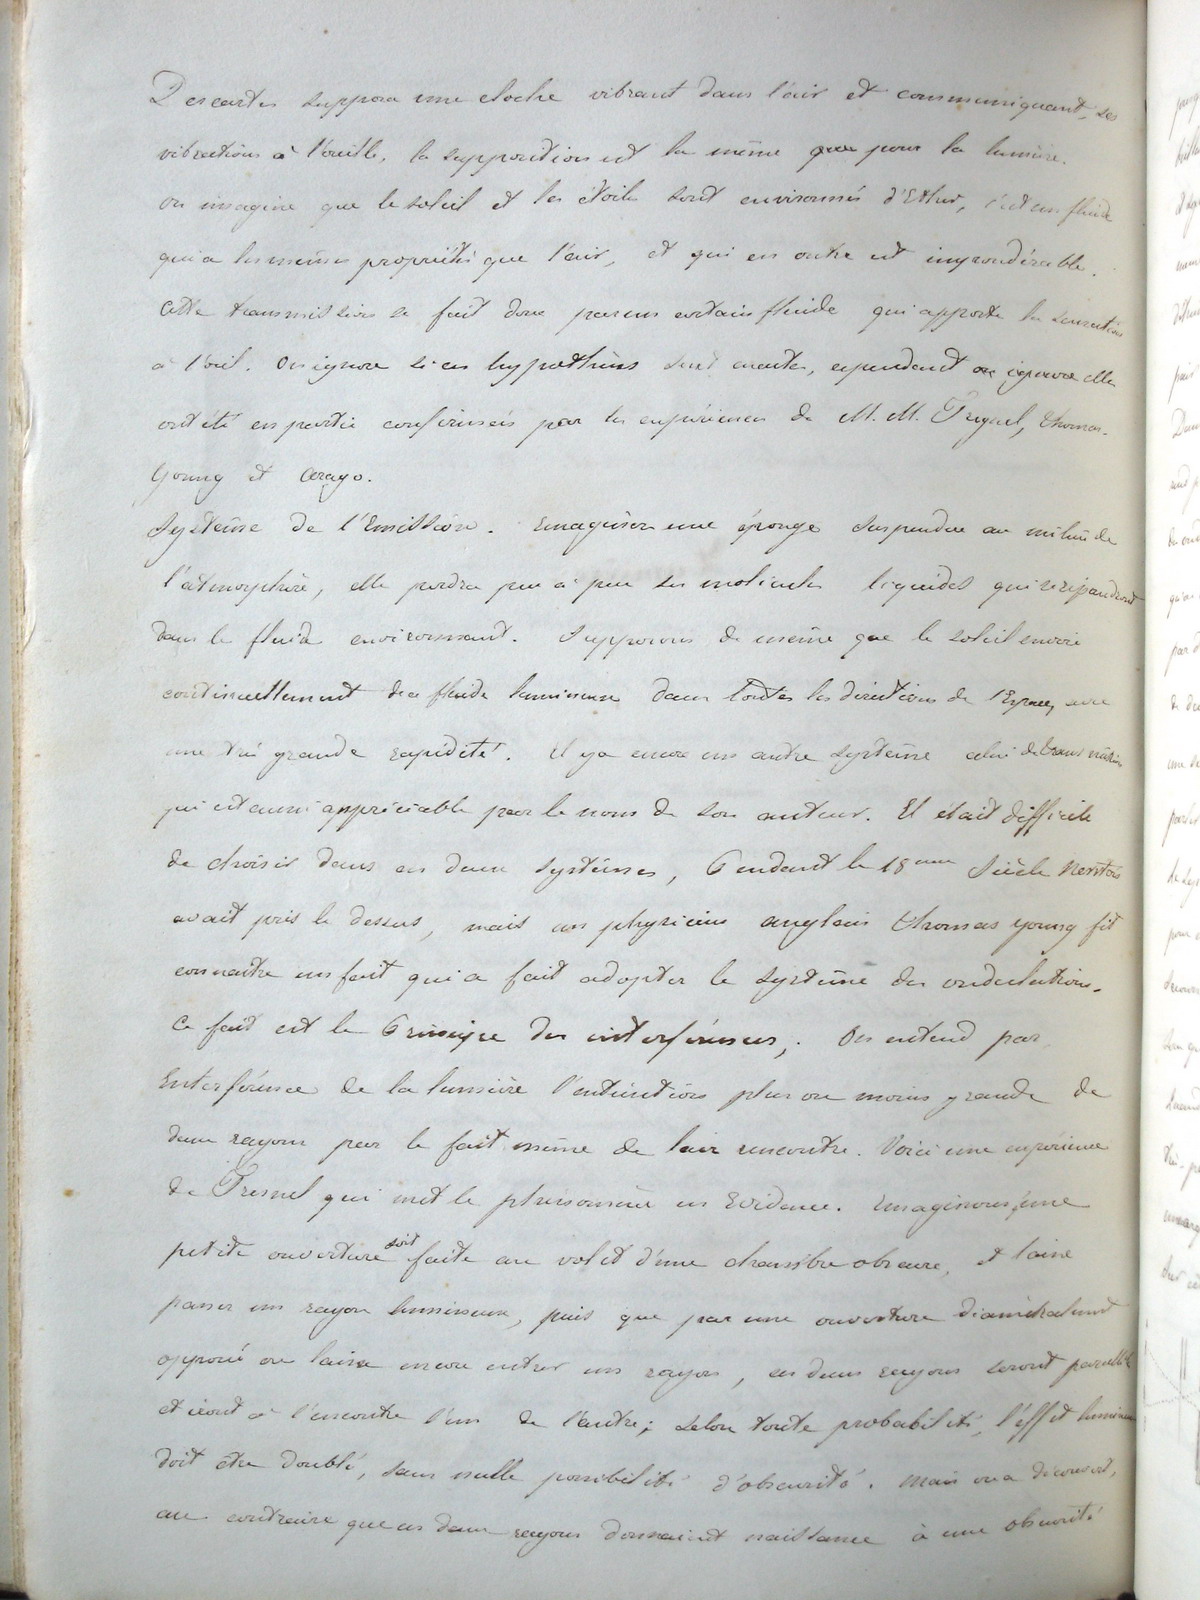 Descartes supposa une cloche vibrant dans l'air et communiquant, ses
vibrations à l'oreille, la supposition est la même que pour la lumière.
on imagine que le soleil et les étoiles sont environnés d'Ether, c'est un fluide
qui a les mêmes propriétés que l'air, et qui en outre est impondérable.
Cette transmission se fait donc par un certain fluide qui apporte la sensation
à l'œil. On ignore si ces hypothèses sont exactes, cependant elle
ont été en partie confirmées par les expériences de M. M. Fresnel, thomas.
Young et Arago.
Système de l'Emission. Imaginer une éponge suspendue au milieu de
l'atmosphère, elle perdra peu à peu ses molécules liquides qui se répandront
dans le fluide environnant. Supposons de même que le soleil envoie
continuellement des fluide lumineux dans toutes les directions de l'Espace, avec
une très grande rapidité. Il y a encore un autre système celui de
qui est aussi appréciable par le nom de son auteur. Il était difficile
de choisir dans ces deux systèmes, Pendant le 18eme Siècle Newton
avait pris le dessus, mais un physicien anglais thomas young fit
connaître un fait qui a fait adopter le système des ondulations.
Ce fait est le Principe des interférences,. On entend par
Interférence de la lumière l'extinction plus ou moins grande de
deux rayons par le fait même de leur rencontre. Voici une expérience
de Fresnel qui met le phénomène en Evidence. Imaginons, une
petite ouverture soit faite au volet d'une chambre obscure, et laisse
passer un rayon lumineux, puis que par une ouverture diamétralement
opposé on laisse encore entrer un rayon, ces deux rayons seront parallèle
et iront à l'encontre l'un de l'autre; selon toute probabilité, l'effet lumineux
doit être doublé, sans nulle possibilité d'obscurité. Mais on a découvert,
au contraire que ces deux rayons donnaient naissance à une obscurité